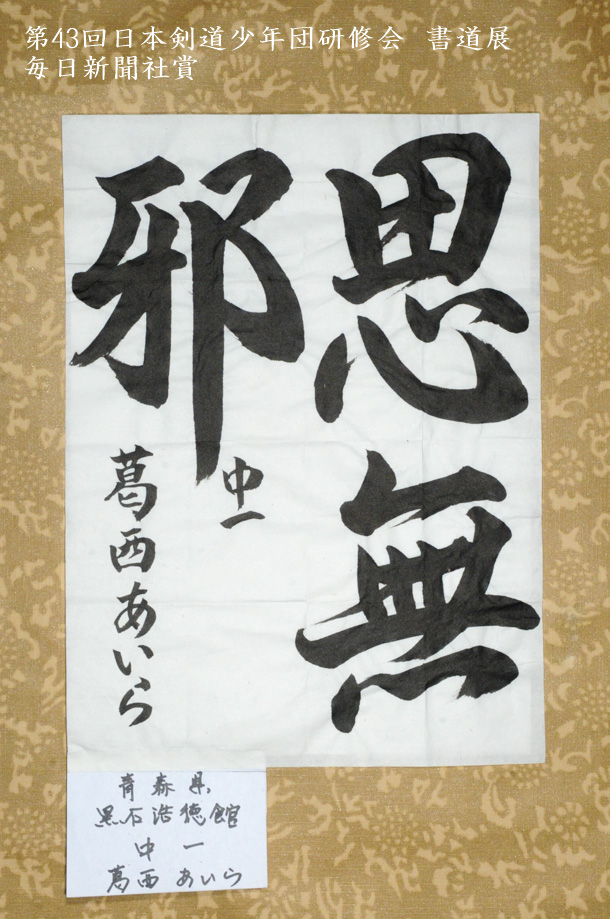 第43回日本剣道少年団研修会 書道展
毎日新聞社賞
思無
邪
中一
葛西あいら
青森県
黒石浩徳館
中一
葛西あいら